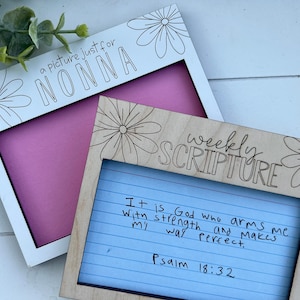 a picture just for
NONNA
weekly
SCRIPTURE
It is God who arms me
with strength and makes
my way perfect
Psalm 18:32